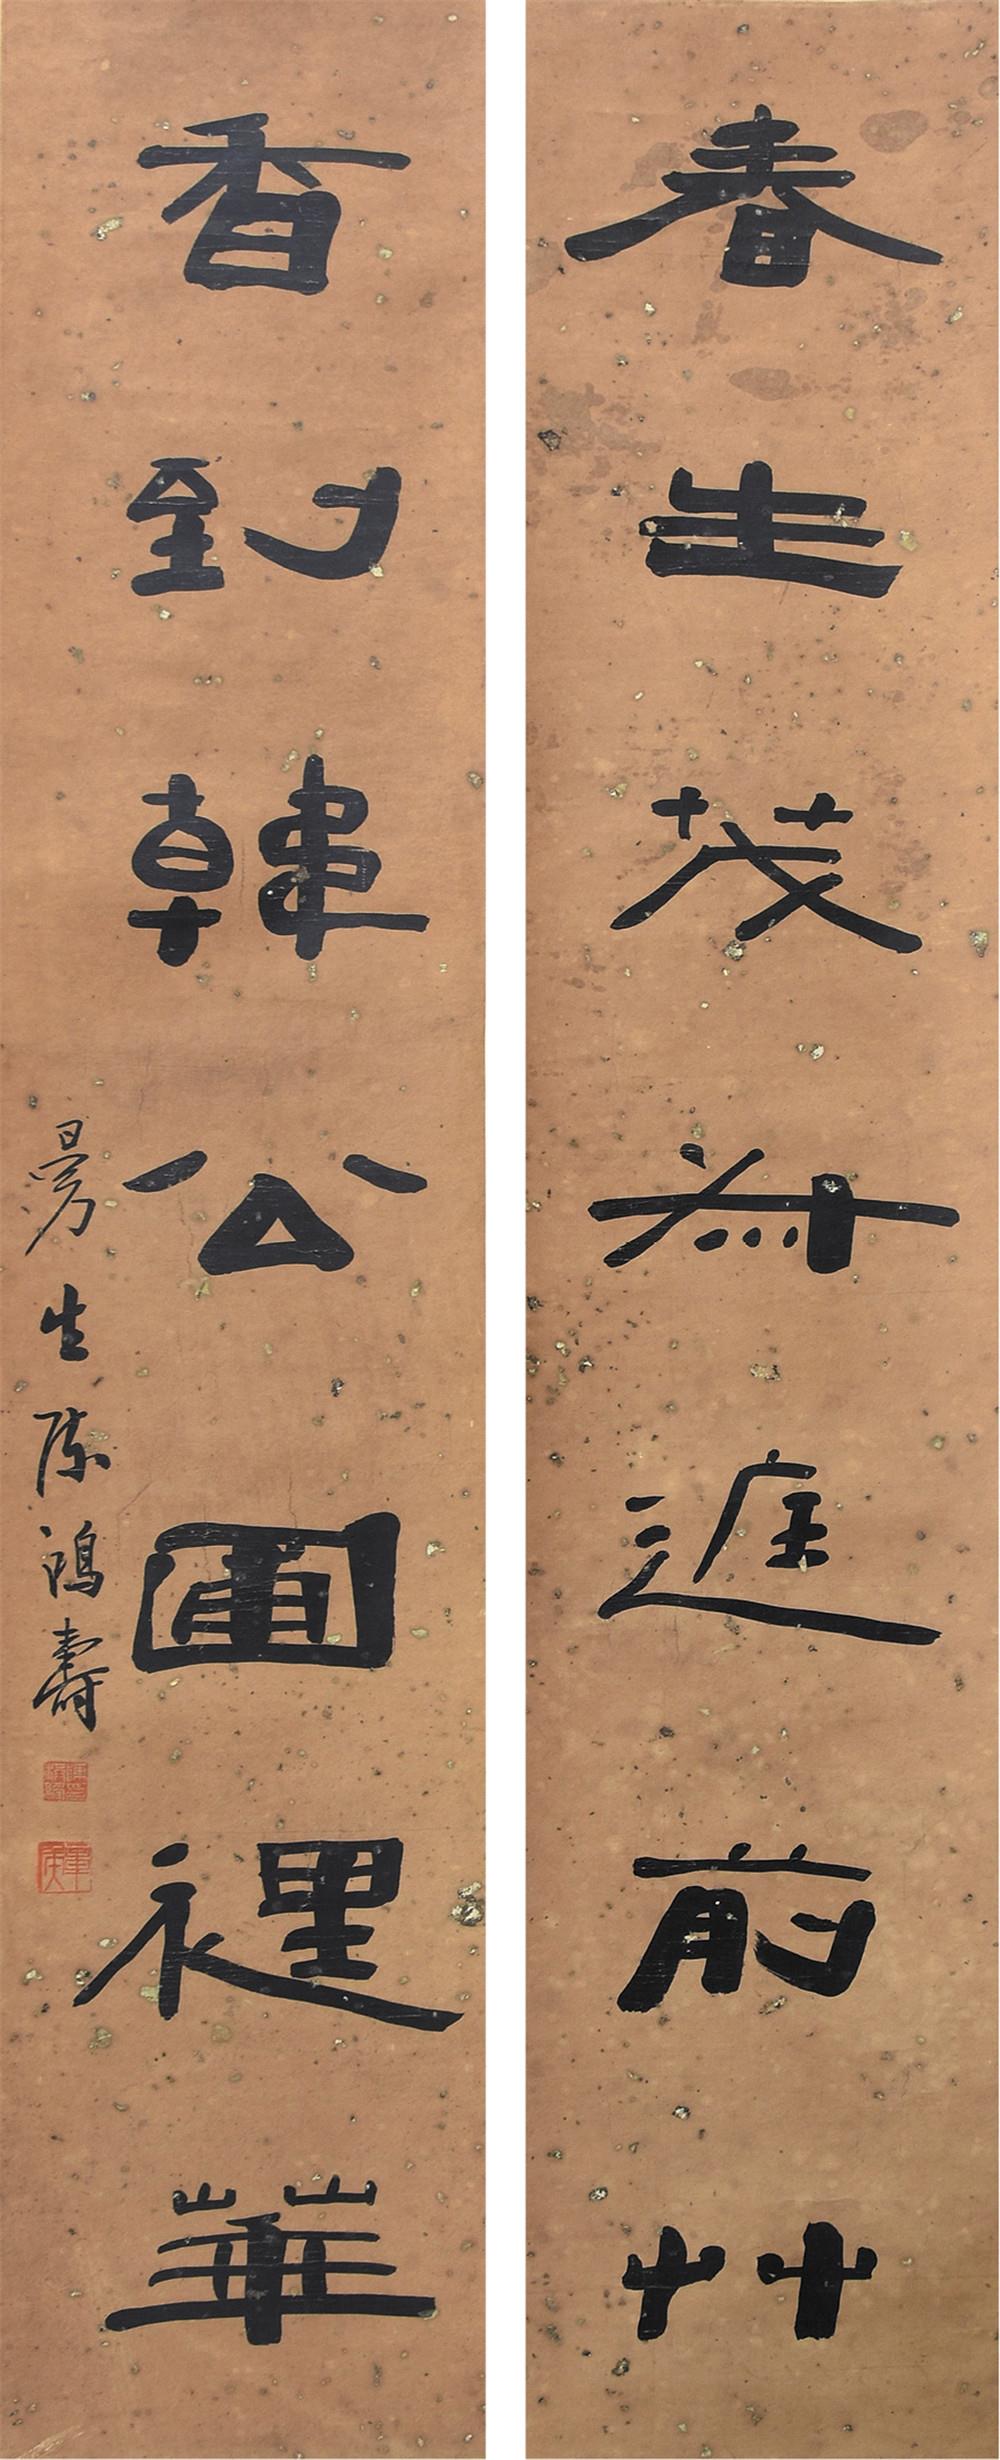 春生茂叔庭前艸
香到韓公圃裡華
曼生陳鴻壽